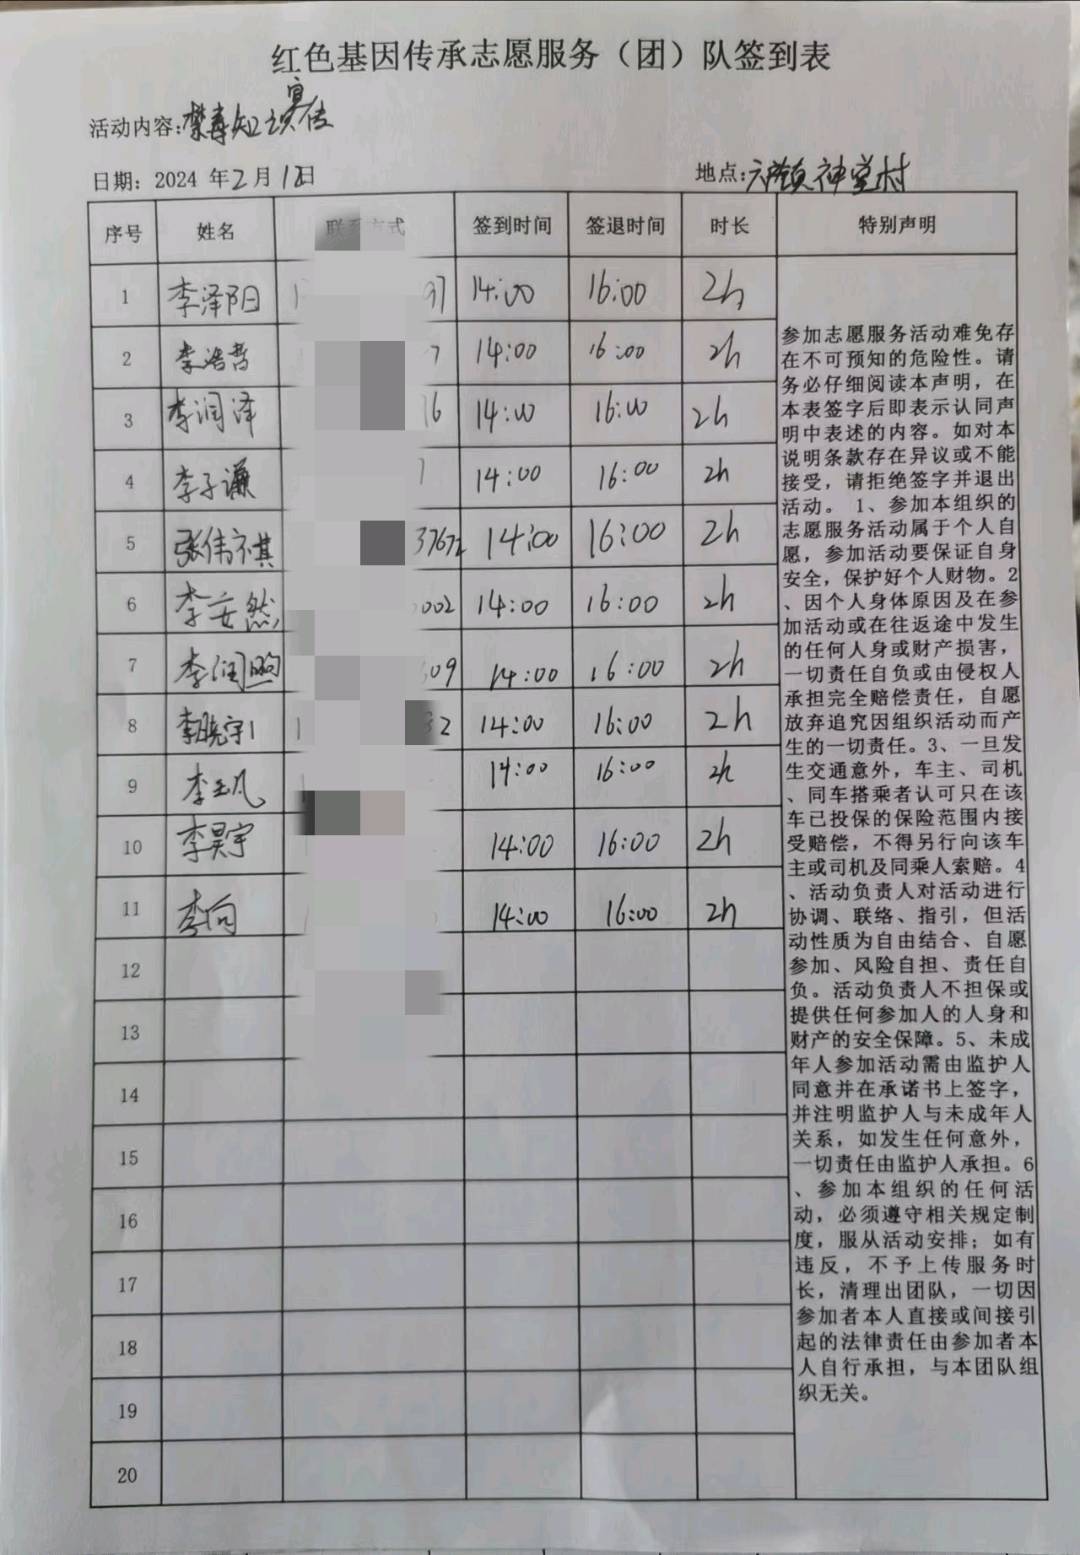 红色基因传承志愿服务（团）队签到表
活动内容:禁毒知识宣传
日期：2024 年2月1日
地点: 神堂村
序号 姓名 联系方式 签到时间 签退时间 时长 特别声明
1 李泽阳 14:00 16:00 2h
2 李浩哲 7 14:00 16:00 2h
3 李润泽 16 14:00 16:00 2h
4 李子谦 14:00 16:00 2h
5 张伟祺 14:00 16:00 2h
6 李安然 002 14:00 16:00 2h
7 李润煦 609 14:00 16:00 2h
8 李晓宇 32 14:00 16:00 2h
9 李玉凡 14:00 16:00 2h
10 李昊宇 14:00 16:00 2h
11 李向 14:00 16:00 2h
12
13
14
15
16
17
18
19
20
参加志愿服务活动难免存
在不可预知的危险性。请
务必仔细阅读本声明，在
本表签字后即表示认同声
明中表述的内容。如对本
说明条款存在异议或不能
接受，请拒绝签字并退出
活动。 1、参加本组织的
志愿服务活动属于个人自
愿，参加活动要保证自身
安全，保护好个人财物。2
、因个人身体原因及在参
加活动或在往返途中发生
的任何人身或财产损害，
一切责任自负或由侵权人
承担完全赔偿责任，自愿
放弃追究因组织活动而产
生的一切责任。3、一旦发
生交通意外，车主、司机
、同车搭乘者认可只在该
车已投保的保险范围内接
受赔偿，不得另行向该车
主或司机及同乘人索赔。4
、活动负责人对活动进行
协调、联络、指引，但活
动性质为自由结合、自愿
参加、风险自担、责任自
负。活动负责人不担保或
提供任何参加人的人身和
财产的安全保障。5、未成
年人参加活动需由监护人
同意并在承诺书上签字，
并注明监护人与未成年人
关系，如发生任何意外，
一切责任由监护人承担。6
、参加本组织的任何活
动，必须遵守相关规定制
度，服从活动安排；如有
违反，不予上传服务时
长，清理出团队，一切因
参加者本人直接或间接引
起的法律责任由参加者本
人自行承担，与本团队组
织无关。